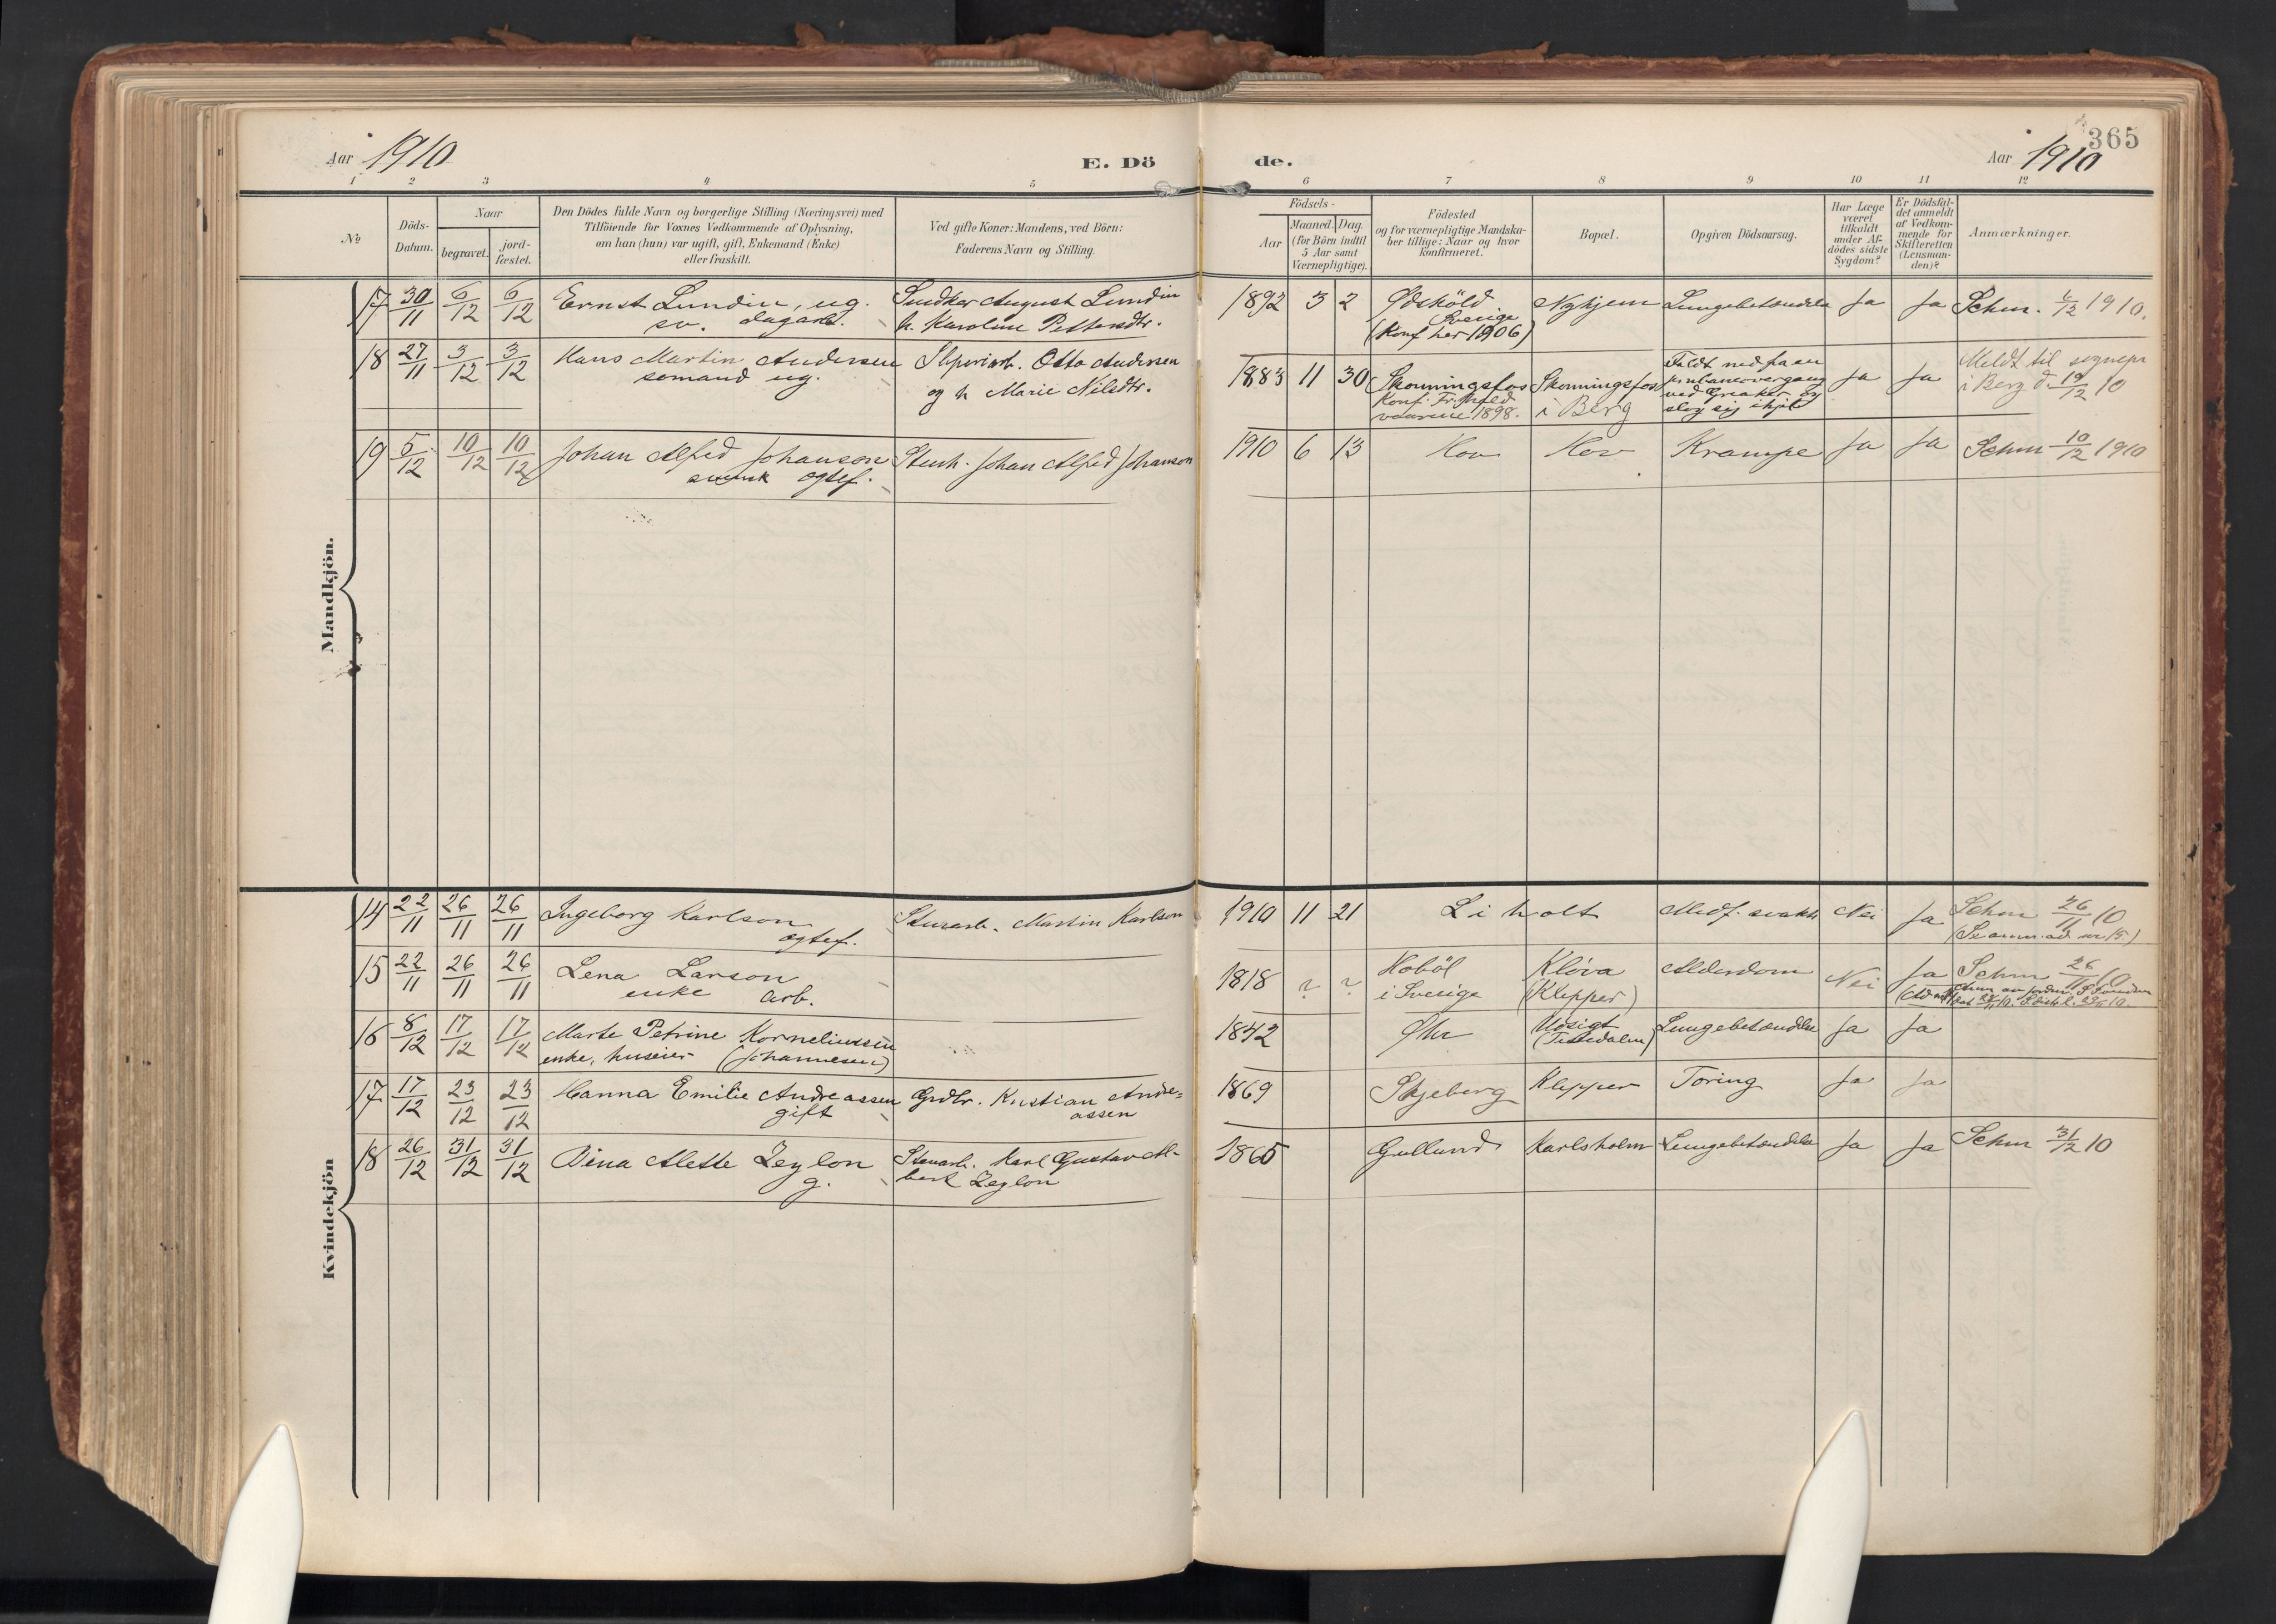 365
Aar 1910 E. Dö de. Aar 1910
1 2 3 4 5 6 7 8 9 10 11 12
№ Döds-Datum. Naar begravet. jord-fæstet. Den Dödes fulde Navn og borgerlige Stilling (Næringsvei) med Tilföiende for Voxnes Vedkommende af Oplysning, om han (hun) var ugift, gift, Enkemand (Enke) eller fraskilt. Ved gifte Koner: Mandens, ved Börn: Faderens Navn og Stilling. Födsels- Aar Maaned. Dag. (for Börn indtil 5 Aar samt Værnepligtige). Födested og for værnepligtige Mandskaber tillige: Naar og hvor Konfirmeret. Bopæl. Opgiven Dödsaarsag. Har Læge været tilkaldt under Afdödes sidste Sygdom? Er Dödsfaldet anmeldt af Vedkommende for Skifteretten (Lensmanden)? Anmærkninger.
Mandkjön.
17 30/11 6/12 6/12 Ernst Lundin, ug. Snedker August Lundin 1892 3 2 Ödsköld Nyhjem Lungebetændelse Ja Ja Schm. 6/12 1910.
sv. dagarb. h. Karoline Pettersdtr. Sverige
(Konf her 1906)
18 27/11 3/12 3/12 Hans Martin Andersen Sliperiarb. Otto Andersen 1883 11 30 Skonningsfos Skonningsfos Faldt ned fra en Ja Ja Meldt til sognepr
sømand ug. og h Marie Nilsdtr. Konf. Fr.hald i Berg jernbaneovergang i Berg d. 12/12 10
vaaren 1898. ved Greaker og
slog sig ihjel
19 5/12 10/12 10/12 Johan Alfred Johanson Stenh. Johan Alfred Johanson 1910 6 13 Hov Hov Krampe Ja Ja Schm 10/12 1910
svensk ogtef.
Kvindekjön
14 22/11 26/11 26/11 Ingeborg Karlson Stenarb. Martin Karlson 1910 11 21 Liholt Medf. svakh Nei Ja Schm 26/11 10
ægtef. (Se anm. ad nr 15.)
15 22/11 26/11 26/11 Lena Larson 1818 ? ? Hoböl Klöva Alderdom Nei Ja Schm 26/11 10
enke arb. i Sverige (Klepper)
16 8/12 17/12 17/12 Marte Petrine Korneliussen 1842 Udsigt Lungebetændelse Ja Ja
enke, huseier (Johannesen) (Tistedalen)
17 17/12 23/12 23/12 Hanna Emilie Andreassen Grdbr. Kristian Andre= 1869 Skjeberg Klepper Tæring Ja Ja
gift assen
18 26/12 31/12 31/12 Dina Alette Zeylon Stenarb. Karl Gustav Al- 1865 Gullund Karlsholm Lungebetændelse Ja Ja Schm 31/12 10
g. bert Zeylon